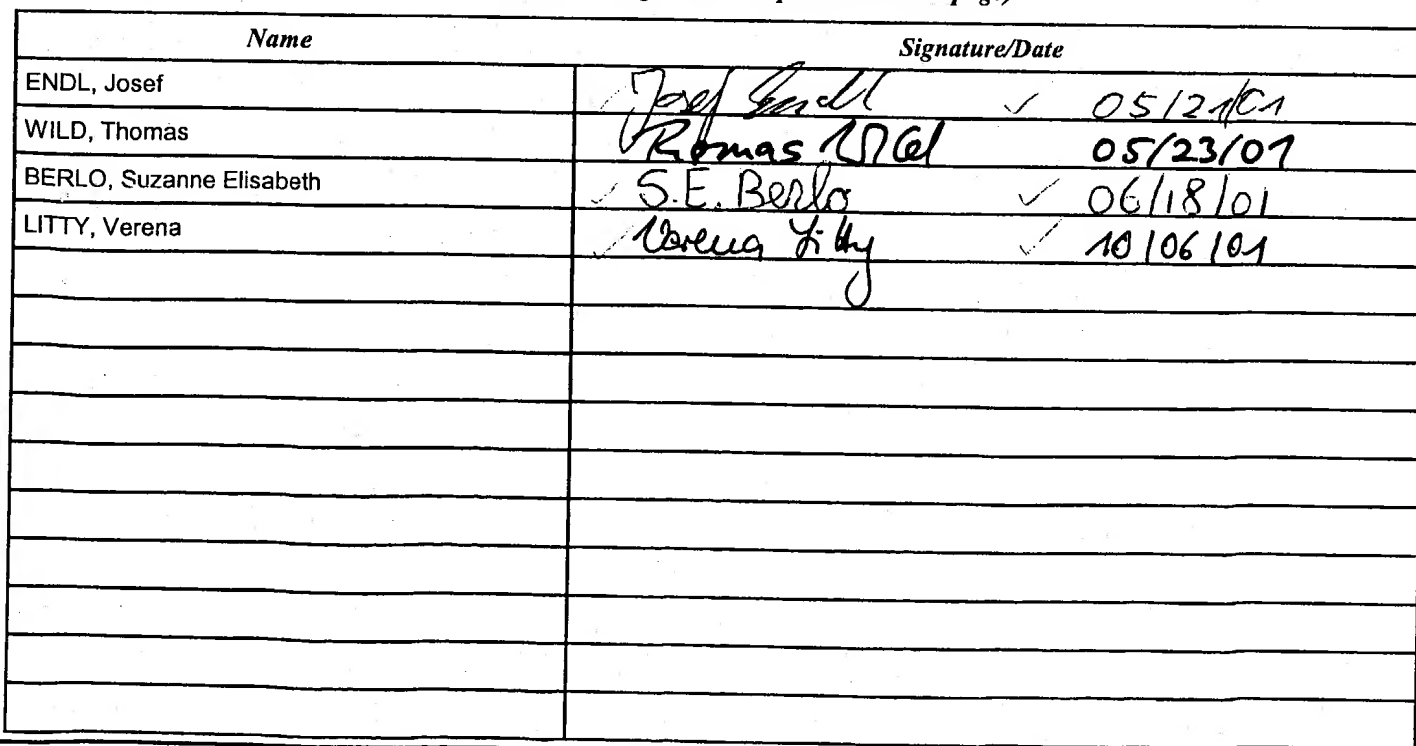 Name Signature/Date
ENDL, Josef Josef Endl ✓ 05/21/01
WILD, Thomas Thomas Wild 05/23/01
BERLO, Suzanne Elisabeth ✓ S.E. Berlo ✓ 06/18/01
LITTY, Verena ✓ Verena Litty ✓ 10/06/01